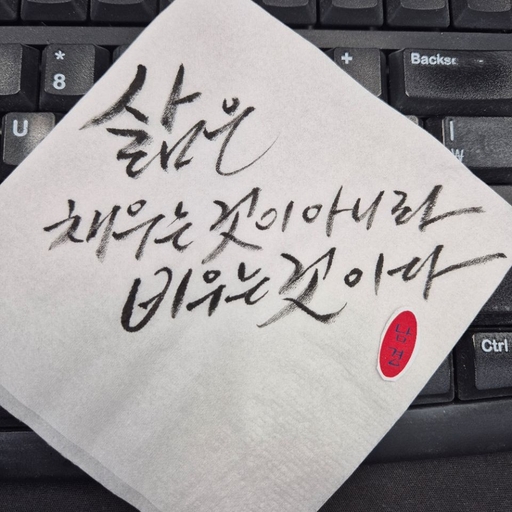 삶은
채우는 것이 아니라
비우는 것이다
*
8
U
+
Backs
₩
Ctrl